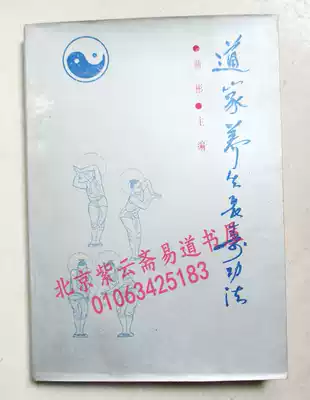 道家养生长寿功法
彬●主编
北京紫云斋易道书店
01063425183